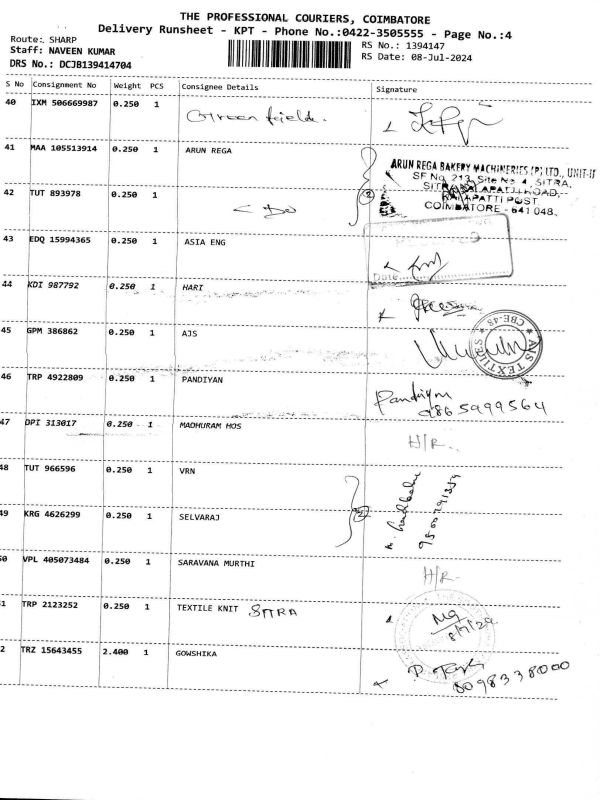 THE PROFESSIONAL COURIERS, COIMBATORE
Delivery Runsheet - KPT - Phone No.:0422-3505555 - Page No.:4
Route: SHARP
Staff: NAVEEN KUMAR
DRS No.: DCJB139414704
RS No.: 1394147
RS Date: 08-Jul-2024
S No Consignment No Weight PCS Consignee Details Signature
40 IXM 506669987 0.250 1 Green fields.
41 MAA 105513914 0.250 1 ARUN REGA
ARUN REGA BAKERY MACHINERIES (P) LTD., UNIT-II
SF No. 213, Site No 4, SITRA,
KALAPATTI POST
COIMBATORE - 641 048.
42 TUT 893978 0.250 1 Do 2
43 EDQ 15994365 0.250 1 ASIA ENG
Date
44 KDI 987792 0.250 1 HARI
45 GPM 386862 0.250 1 AJS
AJS TEXTILES CBE-48
46 TRP 4922809 0.250 1 PANDIYAN
Pandiyan
9865999564
47 DPI 313017 0.250 1 MADHURAM HOS H/R.
48 TUT 966596 0.250 1 VRN
2
49 KRG 4626299 0.250 1 SELVARAJ
50 VPL 405073484 0.250 1 SARAVANA MURTHI H/R-
51 TRP 2123252 0.250 1 TEXTILE KNIT SITRA
8/7/24
52 TRZ 15643455 2.400 1 GOWSHIKA
8098338000